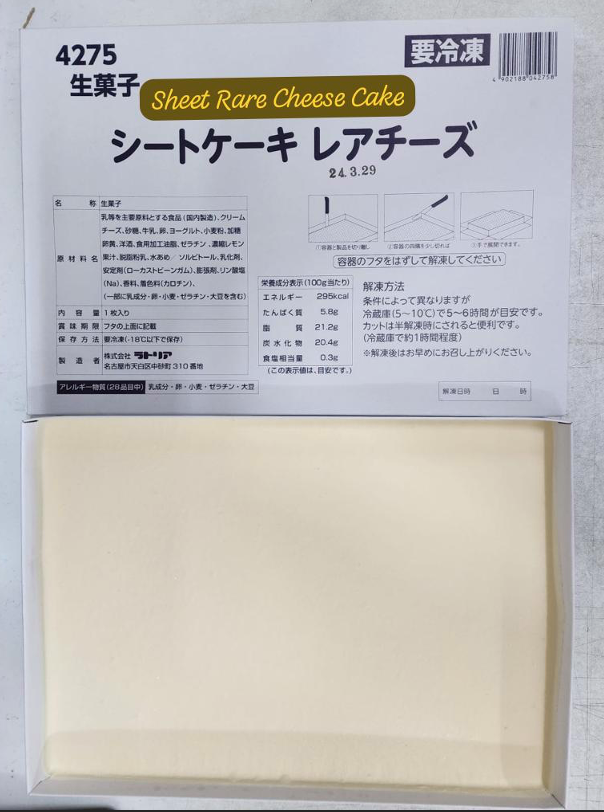 4275
要冷凍
4 902188 042758
生菓子
Sheet Rare Cheese Cake
シートケーキ レアチーズ
24.3.29
名 称 生菓子
原材料名 乳等を主要原料とする食品(国内製造)、クリーム
チーズ、砂糖、牛乳、卵、ヨーグルト、小麦粉、加糖
卵黄、洋酒、食用加工油脂、ゼラチン、濃縮レモン
果汁、脱脂粉乳、水あめ/ソルビトール、乳化剤、
安定剤(ローカストビーンガム)、膨張剤、リン酸塩
(Na)、香料、着色料(カロチン)、
(一部に乳成分・卵・小麦・ゼラチン・大豆を含む)
内容量 1枚入り
賞味期限 フタの上面に記載
保存方法 要冷凍(-18℃以下で保存)
製造者 株式会社 ラトリア
名古屋市天白区中砂町310番地
アレルギー物質(28品目中) 乳成分・卵・小麦・ゼラチン・大豆
①容器と製品を切り離し
②容器の四隅を少し切れば
③手で展開できます。
容器のフタをはずして解凍してください
栄養成分表示(100g当たり)
エネルギー 295kcal
たんぱく質 5.8g
脂質 21.2g
炭水化物 20.4g
食塩相当量 0.3g
(この表示値は、目安です。)
解凍方法
条件によって異なりますが
冷蔵庫(5〜10℃)で5〜6時間が目安です。
カットは半解凍時にされると便利です。
(冷蔵庫で約1時間程度)
※解凍後はお早めにお召し上がりください。
解凍日時 日 時